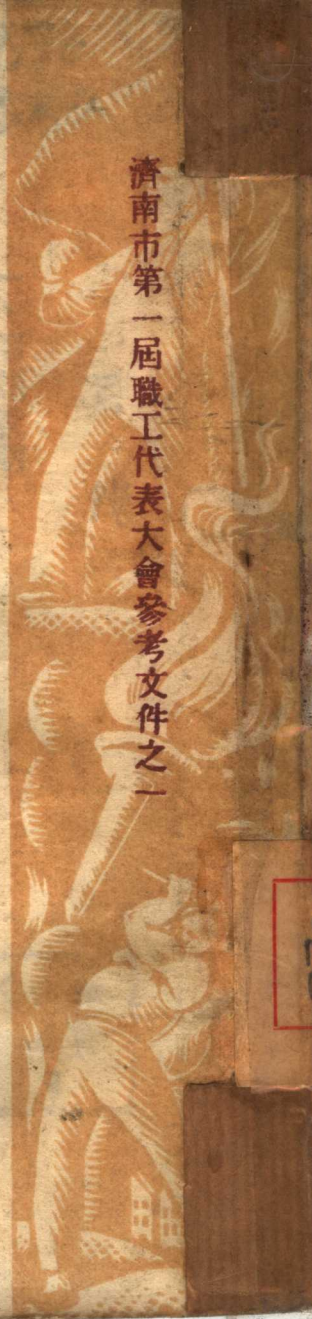 濟南市第一屆職工代表大會參考文件之一